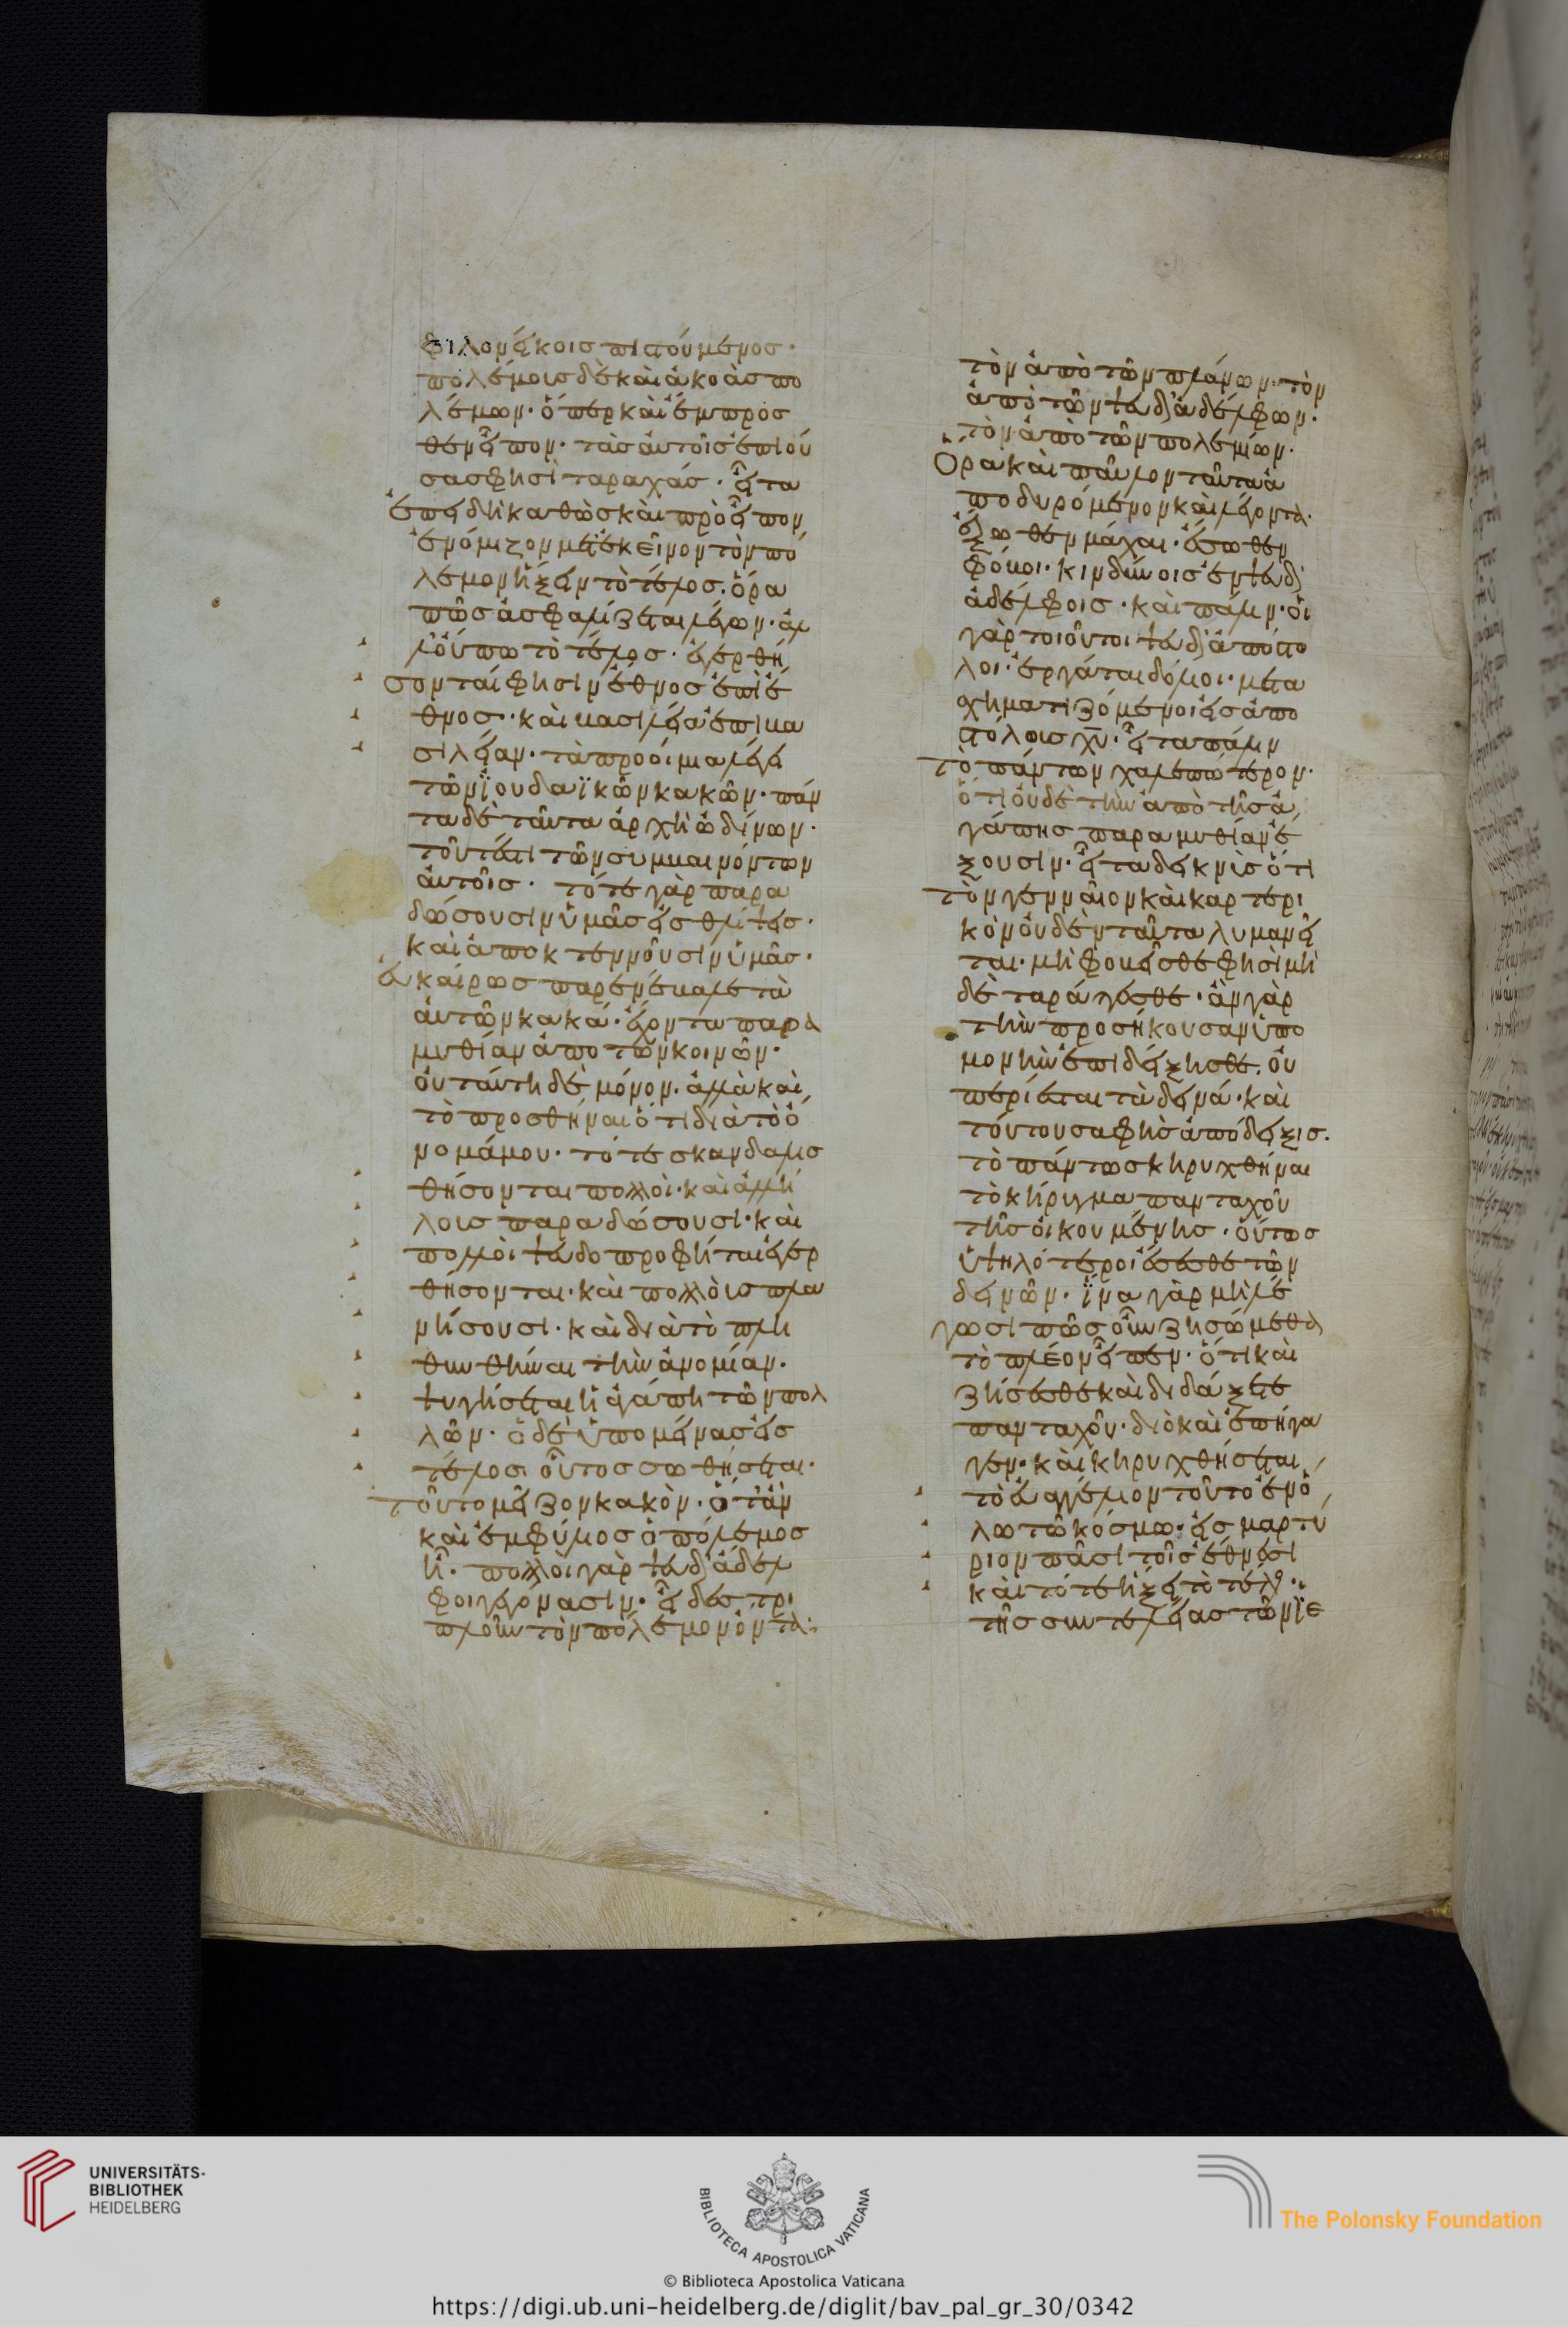 φιλονείκοις πιστούμενος·
πολέμους δὲ καὶ ἀκοὰς πο
λέμων· ὅπερ καὶ ἔμπροσ
θεν εἶπον· τὰς αὐτοῖς ἐπιού
σας φησὶ ταραχάς· εἶτα
ἐπειδὴ καθὼς καὶ πρὸ εἶπον
ἐνόμιζον μετ' ἐκεῖνον τὸν πό
λεμον ἥξειν τὸ τέλος. ὅρα
πῶς ἀσφαλίζεται λέγων· ἀλ
λ' οὔπω τὸ τέλος· ἐγερθή
σονται φησὶν ἔθνος ἐπὶ ἔ
θνος· καὶ βασιλεία ἐπὶ βα
σιλείαν· τὰ προοίμια λέγει
τῶν ἰουδαϊκῶν κακῶν· πάν
τα δὲ ταῦτα ἀρχὴ ὠδίνων·
τοῦτέστι τῶν συμβαινόντων
αὐτοῖς· τότε γὰρ παρα
δώσουσιν ὑμᾶς εἰς θλίψεις·
καὶ ἀποκτεννοῦσιν ὑμᾶς·
εὐκαίρως παρενέβαλε τὰ
αὐτῶν κακά· ἔχοντα παρα
μυθίαν ἀπο τῶν κοινῶν·
οὐ ταύτη δὲ μόνον· ἀλλὰ καὶ
τὸ προσθῆναι ὅτι διὰ τὸ ὄ
νομά μου· τότε σκανδαλισ
θήσονται πολλοί· καὶ ἀλλή
λους παραδώσουσι· καὶ
πολλοὶ ψευδοπροφῆται ἐγερ
θήσονται· καὶ πολλοὺς πλα
νήσουσι· καὶ διὰ τὸ πλη
θυνθῆναι τὴν ἀνομίαν·
ψυγήσεται ἡ ἀγάπη τῶν πολ
λῶν· ὁ δὲ ὑπομείνας εἰς
τέλος οὗτος σωθήσεται·
τοῦτο μεῖζον κακὸν· ὅτ' ἂν
καὶ ἐμφύλιος ὁ πόλεμος
ἦ· πολλοὶ γὰρ ψευδάδελ
φοι γέγονασιν· εἶδες τρι
πλοῦν τὸν πόλεμον ὄντα:
τὸν ἀπὸ τῶν πλάνων· τὸν
ἀπὸ τῶν ψευδαδέλφων·
τὸν ἀπὸ τῶν πολεμίων·
Ὅρα καὶ παῦλον ταῦτα ἀ
ποδυρόμενον καὶ λέγοντα·
ἔξωθεν μάχαι· ἔσωθεν
φόβοι· κινδύνοις ἐν ψευδ
αδέλφοις· καὶ πάλιν· οἱ
γὰρ τοιοῦτοι ψευδαπόστο
λοι· ἐργάται δόλιοι· μετα
σχηματιζόμενοι εἰς ἀπο
στόλους χυ· εἶτα πάλιν
τὸ πάντων χαλεπώτερον·
ὅτι οὐδὲ τὴν ἀπὸ τῆς ἀ
γάπης παραμυθίαν ἕ
ξουσιν· εἶτα δεικνὺς ὅτι
τὸν γενναῖον καὶ καρτερι
κὸν οὐδὲν ταῦτα λυμανεῖ
ται· μὴ φοβεῖσθε φησὶ μὴ
δὲ ταράγεσθε· ἂν γὰρ
τὴν προσήκουσαν ὑπο
μονὴν ἐπιδείξησθε. οὐ
περιέσται τὰ δεινά· καὶ
τούτου σαφὴς ἀπόδειξις.
τὸ πάντως κηρυχθῆναι
τὸ κήρυγμα πανταχοῦ
τῆς οἰκουμένης· οὕτως
ὑψηλότεροι ἔσεσθε τῶν
δεινῶν· ἵνα γὰρ μὴ λέ
γωσι πῶς οὖν ζησώμεθα
τὸ πλέον εἶπεν· ὅτι καὶ
ζήσεσθε καὶ διδάξετε
πανταχοῦ· διὸ καὶ ἐπήγα
γεν· καὶ κηρυχθήσεται
τὸ εὐαγγέλιον τοῦτο ἐν ὅ
λω τῶ κόσμω· εἰς μαρτύ
ριον πᾶσι τοῖς ἔθνεσι
καὶ τότε ἥξει τὸ τέλος·
τῆς συντελείας τῶν ἱε
UNIVERSITÄTS-
BIBLIOTHEK
HEIDELBERG
BIBLIOTECA APOSTOLICA VATICANA
The Polonsky Foundation
© Biblioteca Apostolica Vaticana
https://digi.ub.uni-heidelberg.de/diglit/bav_pal_gr_30/0342